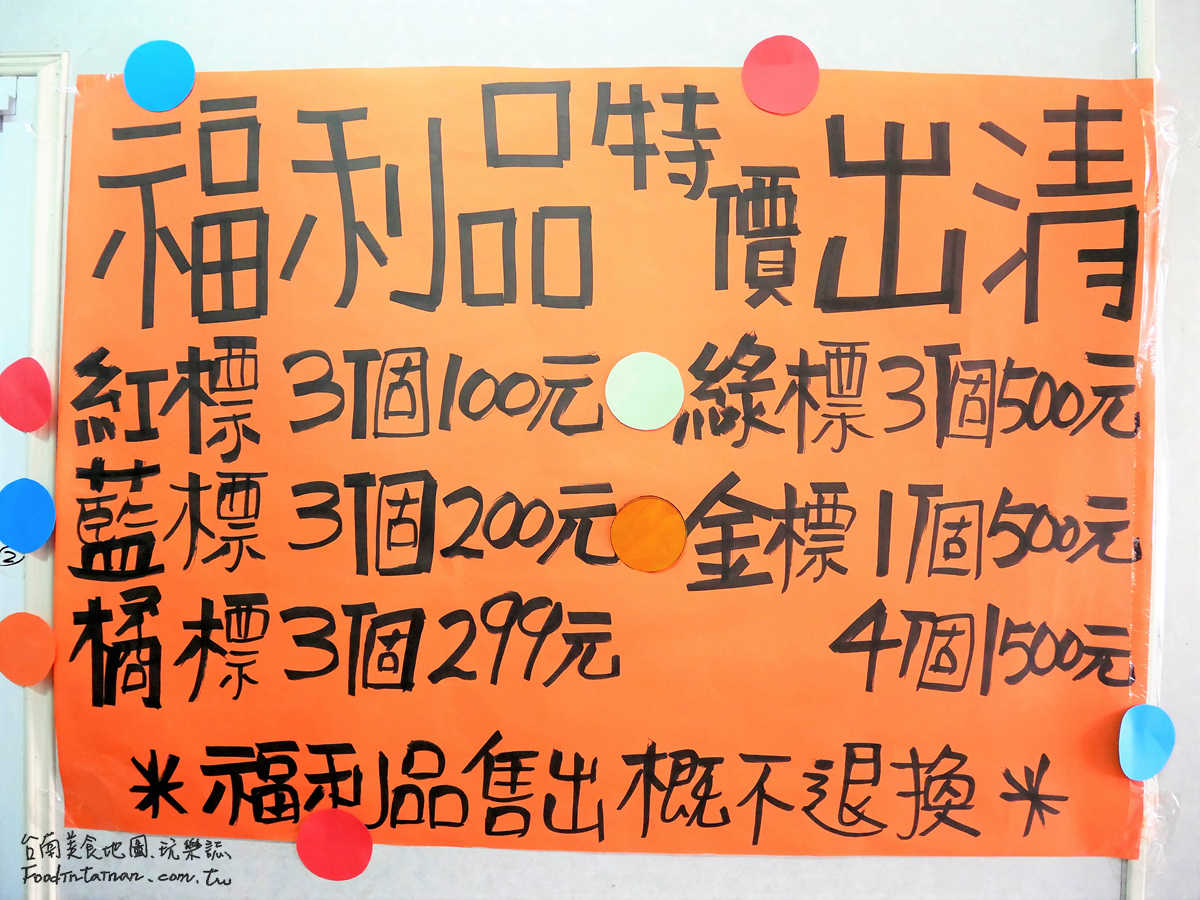 福利品特價出清
紅標3個100元
藍標3個200元
橘標3個299元
綠標3個500元
金標1個500元
4個1500元
＊福利品售出概不退換＊
②
台南美食地圖.玩樂誌
Foodintainan.com.tw